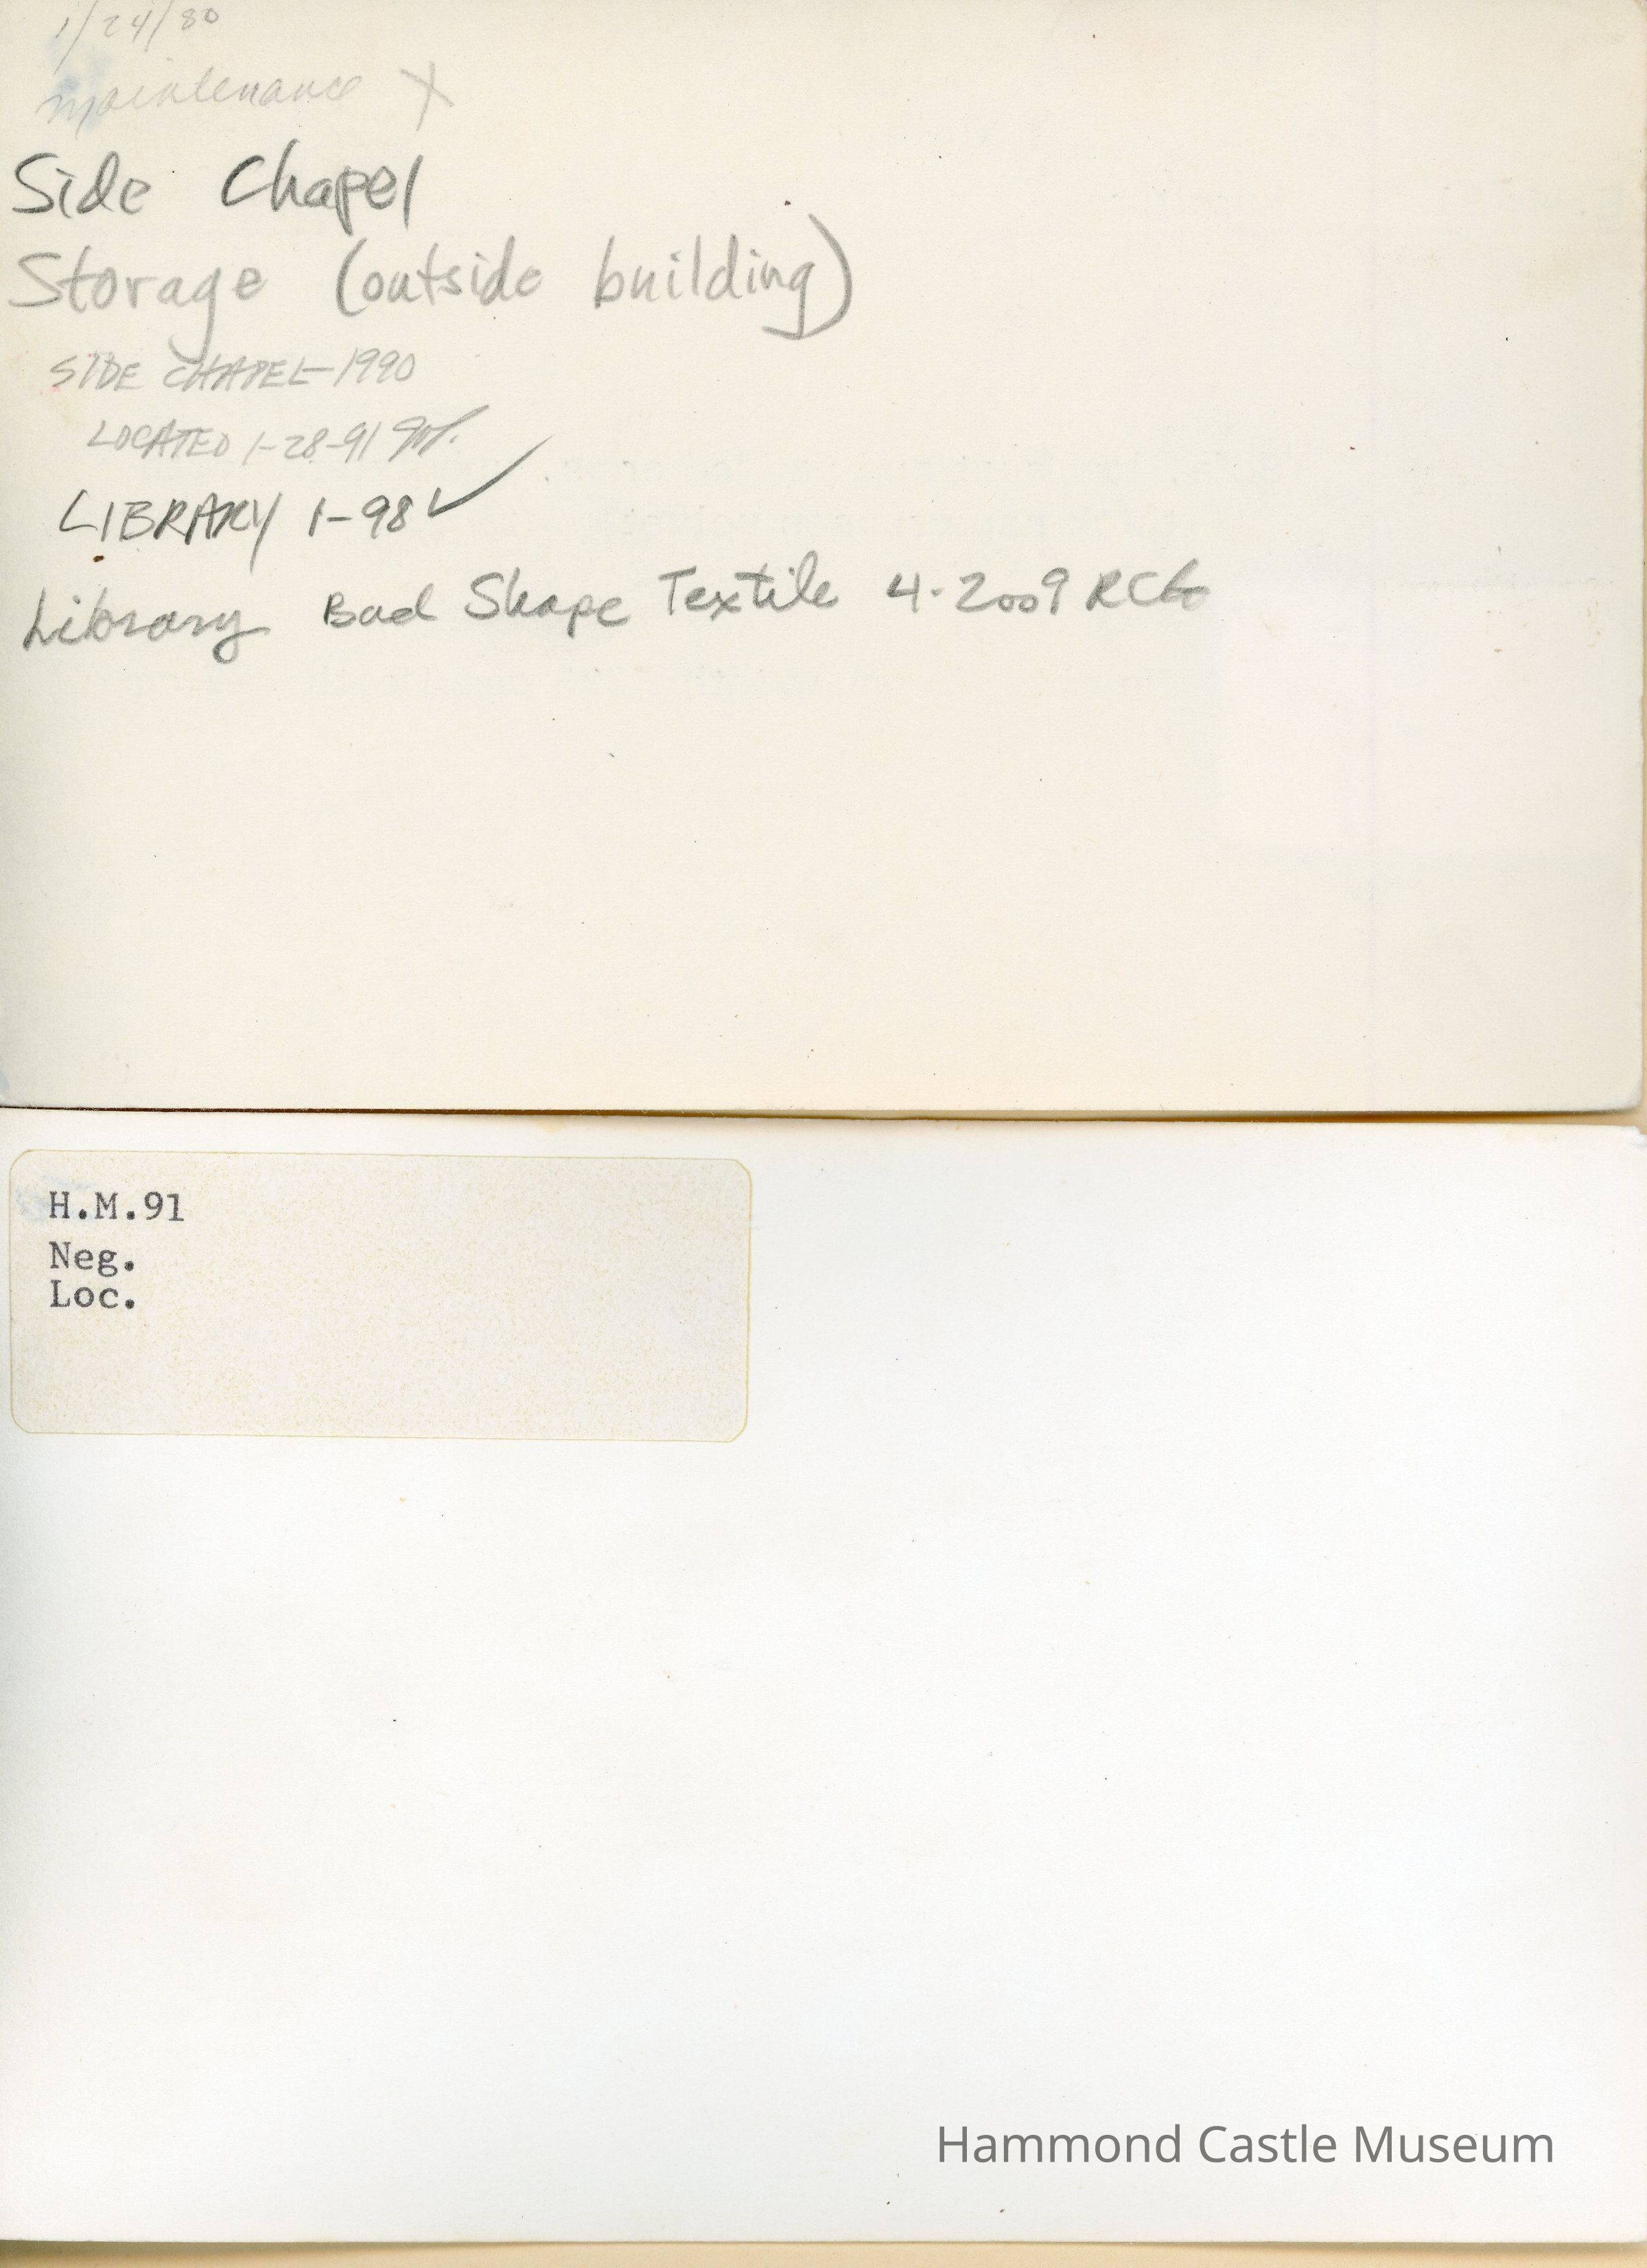 1/24/80
maintenance X
Side Chapel
Storage (outside building)
SIDE CHAPEL-1990
LOCATED 1-28-91
LIBRARY 1-98 ✓
Library Bad Shape Textile 4-2009
H.M.91
Neg.
Loc.
Hammond Castle Museum